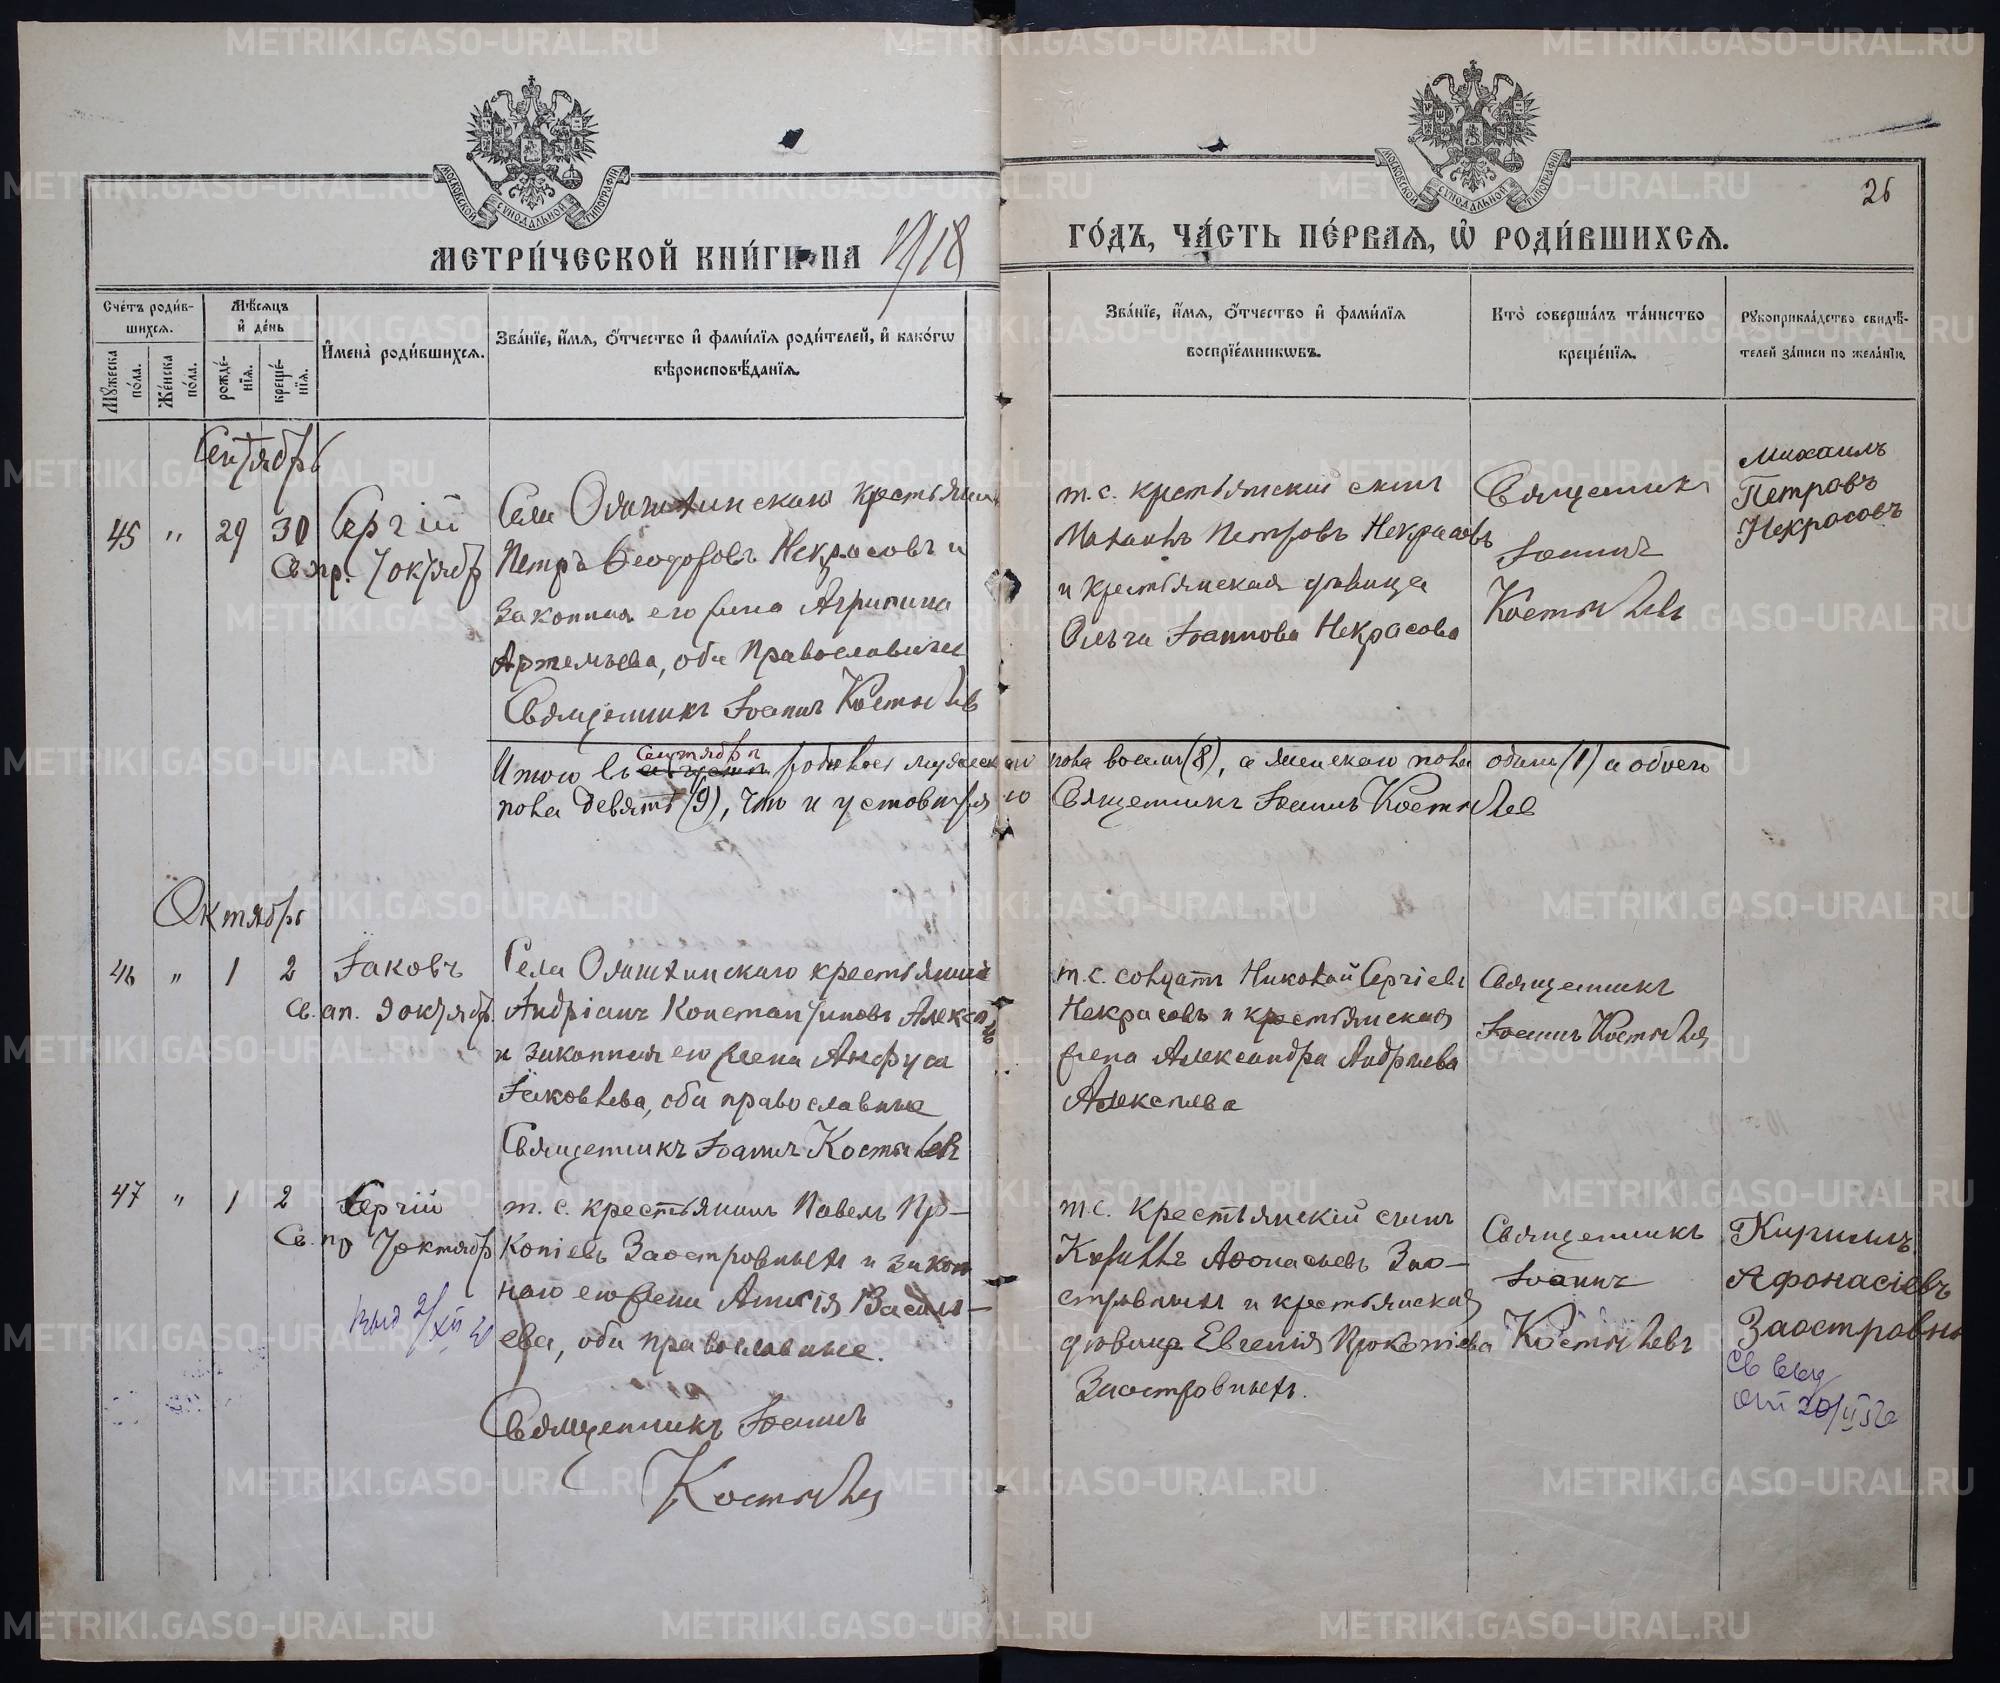 МЕТРИ́ЧЕСКОЙ КНИ́ГИ НА 1918
ГО́ДЪ, ЧА́СТЬ ПЕ́РВАѦ, Ѽ РОДИ́ВШИХСѦ.
26
МОСКОВСКОЙ СѴНОДАЛЬНОЙ ТИПОГРАФІИ
МОСКОВСКОЙ СѴНОДАЛЬНОЙ ТИПОГРАФІИ
Сче́тъ роди́в-
шихсѧ.
Мꙋ́жеска
по́ла.
Же́нска
по́ла.
Мѣ́сѧцъ
и҆ де́нь
рожде́-
нїѧ.
креще́-
нїѧ.
И҆мена̀ роди́вшихсѧ.
Зва́нїе, и҆́мѧ, ѻ҆́тчество и҆ фами́лїѧ роди́телей, и҆ како́гѡ
вѣроисповѣ́данїѧ.
Зва́нїе, и҆́мѧ, ѻ҆́тчество и҆ фами́лїѧ
воспрїе́мникѡвъ.
Кто̀ соверша́лъ та́инство
креще́нїѧ.
Рꙋкоприкла́дство свидѣ́-
телей за́писи по жела́нїю.
Сентябрь
45 " 29 30 Сергій
Св. пр. 7 октябр
Села                крестьянинъ
Петръ Ѳеодоровъ Некрасовъ и
законная его жена Агрипина
Артемьева, оба Православные
Священникъ Іоаннъ Костылев
т.с. крестьянский сынъ
Михаилъ Петровъ Некрасовъ
и крестьянская дѣвица
Ольга Іоаннова Некрасова
Священникъ
Іоаннъ
Костылевъ
Михаилъ
Петровъ
Некрасовъ
Итого въ сентябрѣ родилось мужскаго пола восемь (8), а женскаго пола один (1) а обоего
пола девять (9), что и удостовѣряю Священникъ Іоаннъ Костылев
Октябрь
46 " 1 2 Іаковъ
Св. ап. 9 октябр.
Села                крестьянинъ
Андріанъ Константиновъ
и законная его жена Анфуса
Іаковлева, оба православные
Священникъ Іоаннъ Костылевъ
т.с. солдатъ Николай Сергіевъ
Некрасовъ и крестьянская
жена Александра Андріева
Алексѣева
Священникъ
Іоаннъ Костылев
47 " 1 2 Сергій
Св. пр 7 октябр
т. с. крестьянинъ Павелъ Про-
копіевъ Заостровныхъ и закон
ная его жена           Василь-
ева, оба православные.
Священникъ Іоаннъ
Костылев
т.с. Крестьянскій сынъ
Кириллъ Аѳонасьевъ Зао-
стровныхъ и крестьянская
дѣвица Евгенія Прокопіева
Заостровныхъ.
Священникъ
Іоаннъ
Костылевъ
Кирилъ
Афонасіевъ
Заостровны
выд 2/XII
Св выд
от 20/II
METRIKI.GASO-URAL.RU